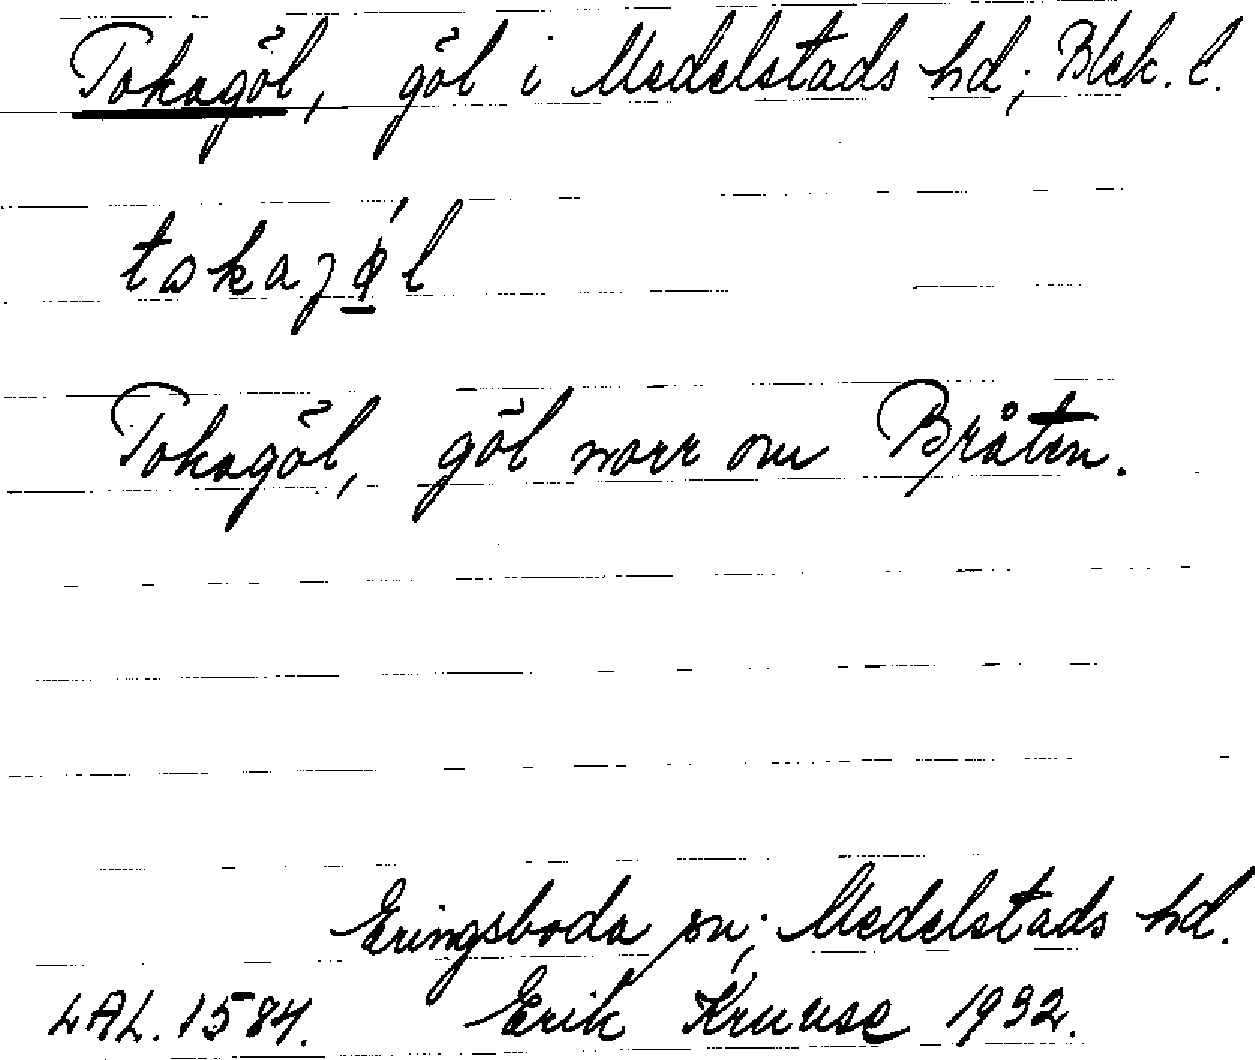 Tokagöl, göl i Medelstads hd; Blek. l.
tokaȷǿ̲l
Tokagöl, göl norr om Bråten.
Eringsboda sn; Medelstads hd.
LAL. 1584. Erik Kruuse 1932.